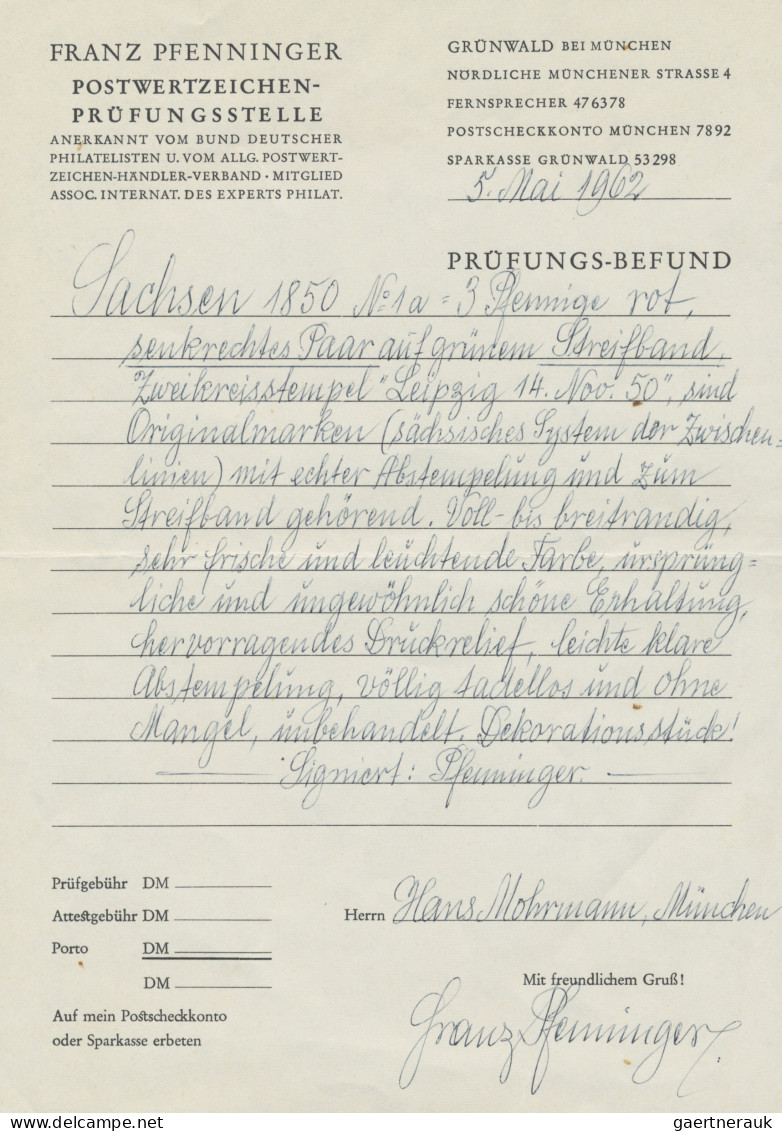 FRANZ PFENNINGER
POSTWERTZEICHEN-
PRÜFUNGSSTELLE
ANERKANNT VOM BUND DEUTSCHER
PHILATELISTEN U. VOM ALLG. POSTWERT-
ZEICHEN-HÄNDLER-VERBAND · MITGLIED
ASSOC. INTERNAT. DES EXPERTS PHILAT.
GRÜNWALD BEI MÜNCHEN
NÖRDLICHE MÜNCHENER STRASSE 4
FERNSPRECHER 476378
POSTSCHECKKONTO MÜNCHEN 7892
SPARKASSE GRÜNWALD 53298
5. Mai 1962
PRÜFUNGS-BEFUND
Sachsen 1850 No 1a = 3 Pfennige rot,
senkrechtes Paar auf grünem Streifband,
Zweikreisstempel "Leipzig 14. Nov. 50", sind
Originalmarken (sächsisches System der Zwischen=
linien) mit echter Abstempelung und zum
Streifband gehörend. Voll- bis breitrandig,
sehr frische und leuchtende Farbe, ursprüng=
liche und ungewöhnlich schöne Erhaltung,
hervorragendes Druckrelief, leichte klare
Abstempelung, völlig tadellos und ohne
Mangel, unbehandelt. Dekorationsstück!
Signiert: Pfenninger.
Prüfgebühr DM
Attestgebühr DM
Porto DM
DM
Auf mein Postscheckkonto
oder Sparkasse erbeten
Herrn Hans Mohrmann, München
Mit freundlichem Gruß!
Franz Pfenninger
gaertnerauk